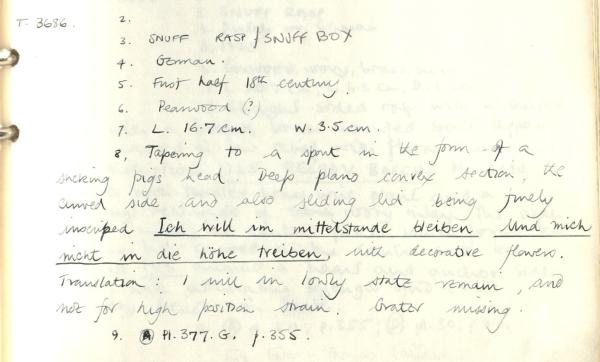 T. 3686.
2.
3. SNUFF RASP / SNUFF BOX
4. German.
5. First half 18th century.
6. Pearwood (?)
7. L. 16.7 cm. W. 3.5 cm.
8, Tapering to a spout in the form of a
sucking pigs head. Deep plano convex section, the
curved side and also sliding lid being finely
inscriped Ich will im mittelstande bleiben Und mich
nicht in die höhe treiben, with decorative flowers.
Translation: I will in lowly state remain, and
not for high position strain. Grater missing.
9. A Pl. 377. G. p. 355.